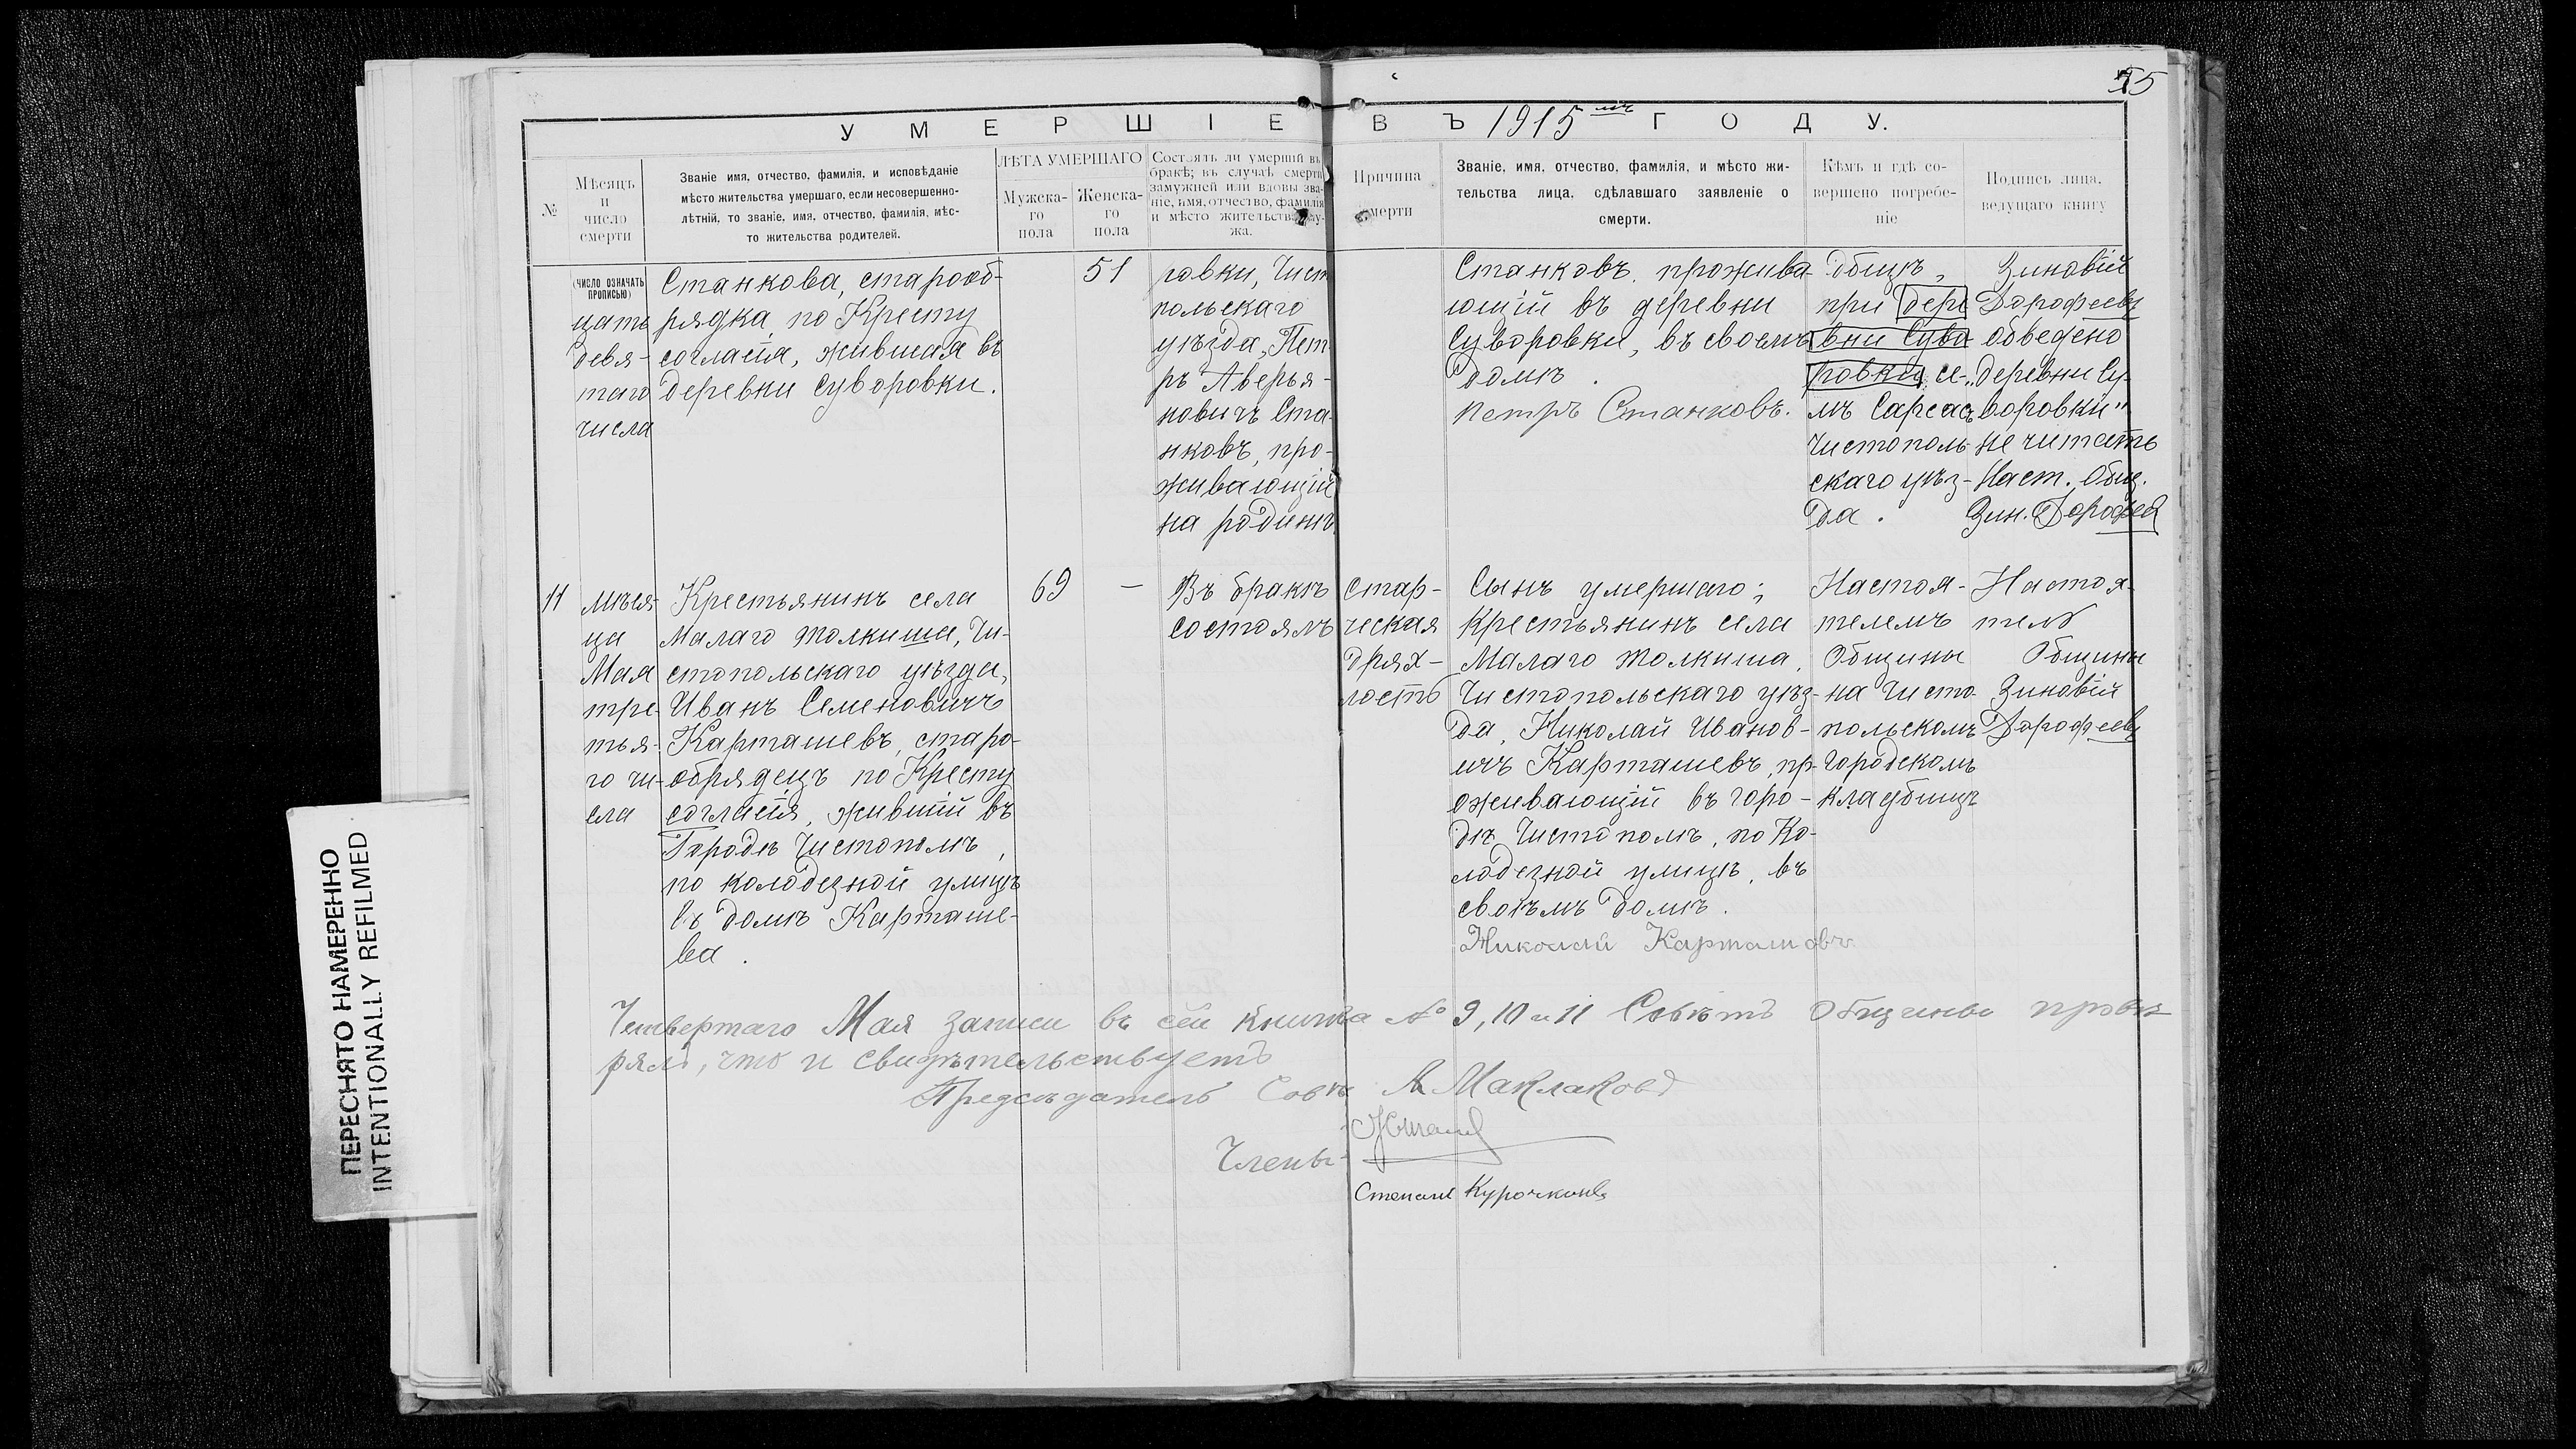 55
УМЕРШІЕ ВЪ 1915 мъ ГОДУ.
№
Мѣсяцъ
и
число
смерти
Званіе имя, отчество, фамилія, и исповѣданіе
мѣсто жительства умершаго, если несовершенно-
лѣтній, то званіе, имя, отчество, фамилія, мѣс-
то жительства родителей.
ЛѢТА УМЕРШАГО
Мужска-
го
пола
Женска-
го
пола
Состоялъ ли умершій въ
бракѣ; въ случаѣ смерти
замужней или вдовы зва-
ніе, имя, отчество, фамилія
и мѣсто жительства му-
жа.
Причина
смерти
Званіе, имя, отчество, фамилія, и мѣсто жи-
тельства лица, сдѣлавшаго заявленіе о
смерти.
Кѣмъ и гдѣ со-
вершено погребе-
ніе
Подпись лица,
ведущаго книгу
(ЧИСЛО ОЗНАЧАТЬ
ПРОПИСЬЮ)
цать
девя-
таго
числа
Станкова, старооб-
рядка по Кресту
согласія, жившая въ
деревни Суворовки.
51
ровки, Чист
польскаго
уѣзда, Пет
ръ Аверья-
новичъ Ста-
нковъ, про-
живающій
на родинѣ
Станковъ, прожива-
ющій въ деревни
Суворовки, въ своемъ
домѣ.
Петръ Станковъ.
дбищѣ,
при дере
вни Суво
ровки, се-
лѣ Сарсасъ
Чистополь-
скаго уѣз-
да.
Зиновій
Дорофеевъ
обведено
„деревни Су-
воровки"
не читать
Наст. Общ.
Зин. Дорофеев
11
мѣся-
ца
Мая
тре-
тья-
го чи-
сла
Крестьянинъ села
Малаго Толкиша, Чи-
стопольскаго уѣзда,
Иванъ Семеновичъ
Карташевъ, старо-
обрядецъ по Кресту
согласія, жившій въ
Городѣ Чистополѣ,
по колодезной улицѣ
въ домѣ Карташе-
ва.
69
—
Въ бракѣ
состоялъ
Стар-
ческая
дрях-
лость
Сынъ умершаго;
Крестьянинъ села
Малаго Толкиша,
Чистопольскаго уѣз-
да, Николай Иванов-
ичъ Карташевъ, пр-
оживающій въ горо-
дѣ Чистополѣ, по Ко-
лодезной улицѣ, въ
своѣмъ домѣ.
Николай Карташовъ
Настоя-
телемъ
Общины
на Чисто-
польскомъ
Городскомъ
кладбищѣ
Настоя-
тель
Общины
Зиновій
Дорофеевъ
Четвертаго Мая записи въ сей книга № 9, 10 и 11 Совѣтъ Общины провѣ
рялъ, что и свидѣтельствуетъ
Предсѣдатель Совѣ А Маклаковъ
Члены
Степанъ Курочкинъ
ПЕРЕСНЯТО НАМЕРЕННО
INTENTIONALLY REFILMED